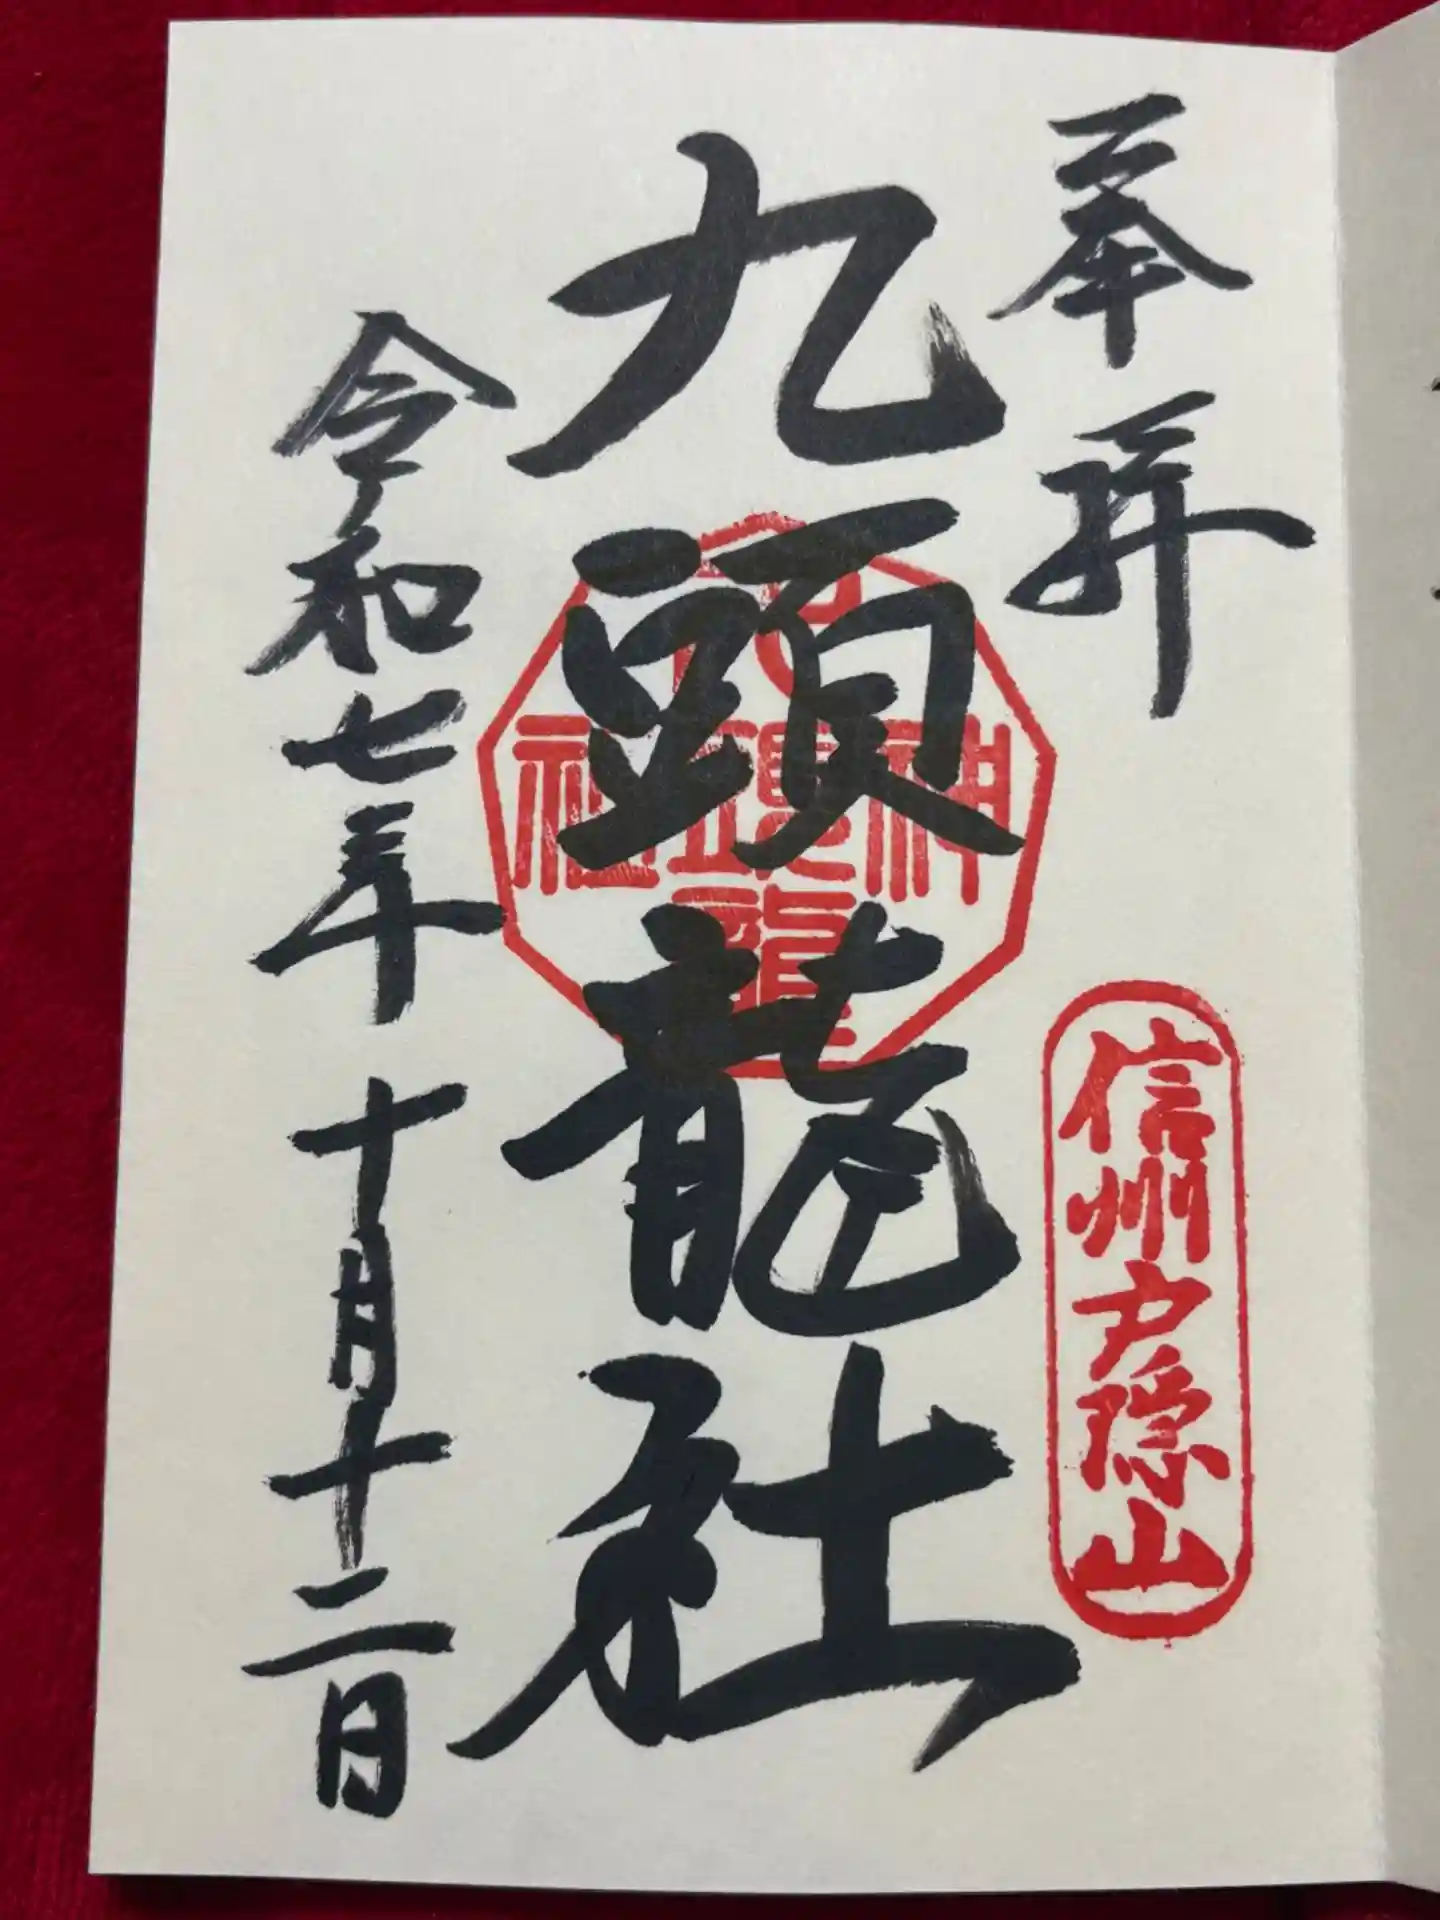 奉拝
信州戸隠山
九頭龍社
九頭龍
神社
令和七年十月十二日